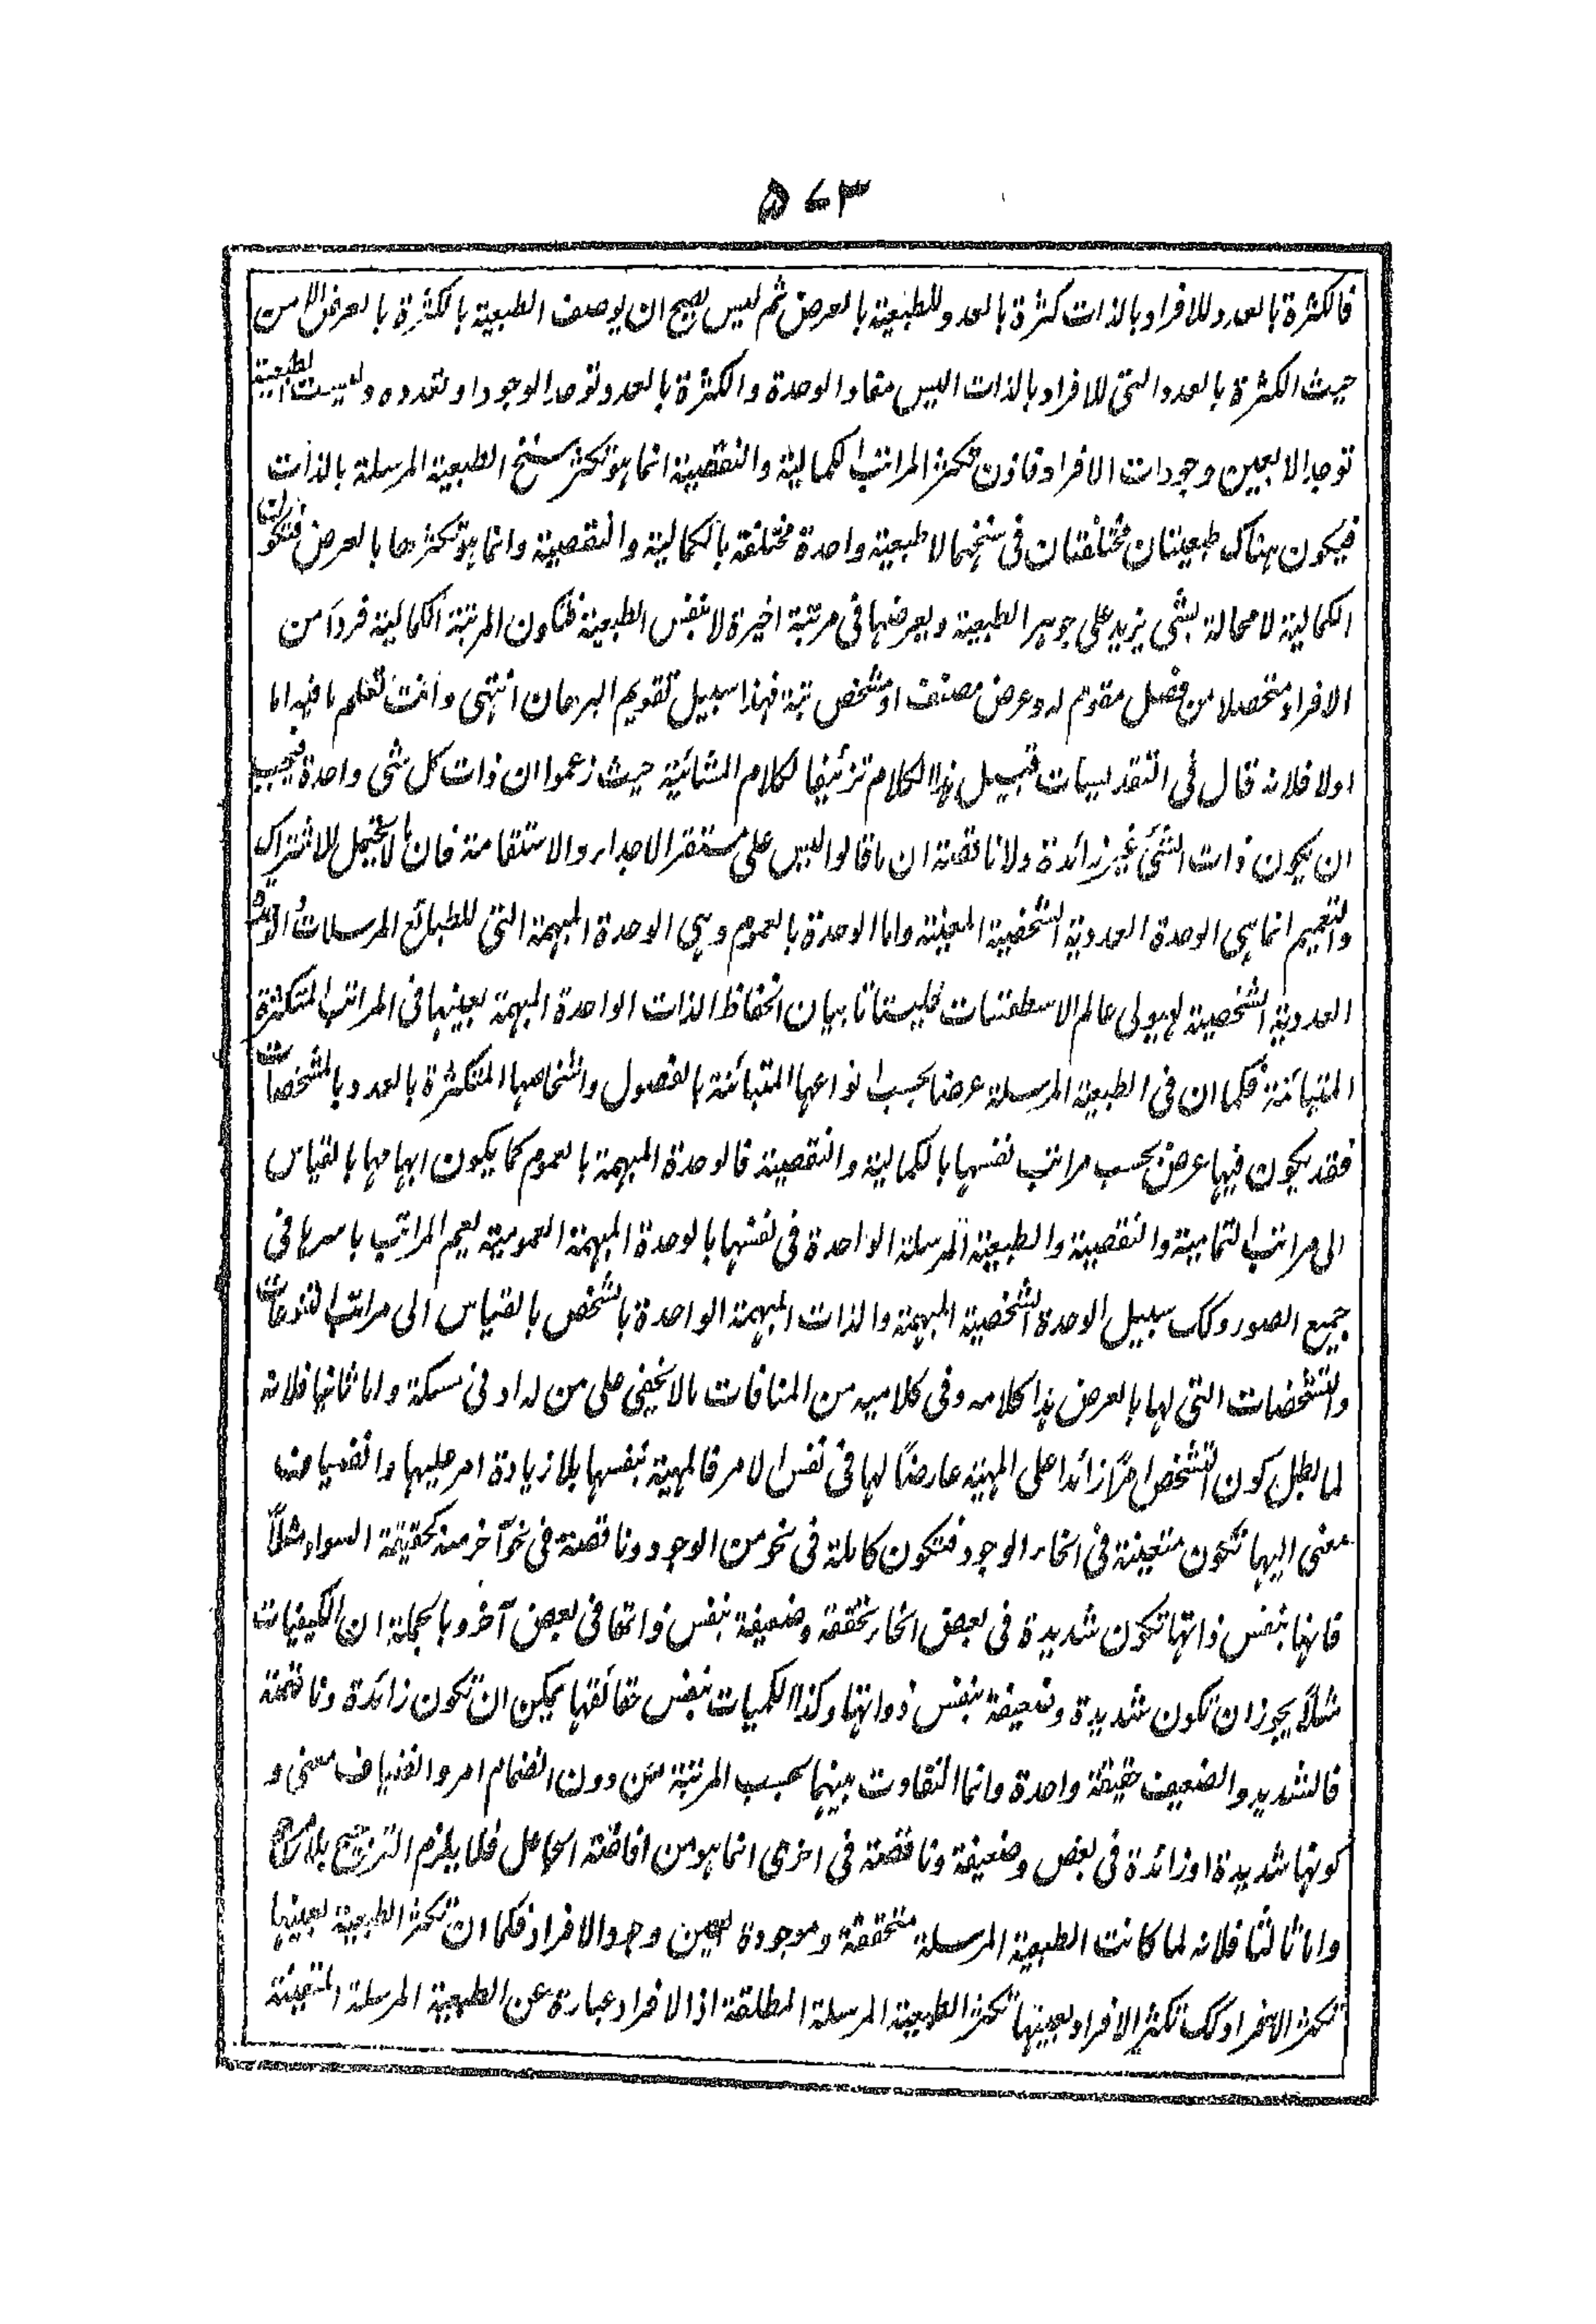 ۵۷۳
فالكثرة بالعدد للافراد بالذات كثرة بالعدد للطبعية بالعرض ثم ليس يصح ان يوصف الطبعية بالكثرة بالعرض الا من
حيث الكثرة بالعدد التى للافراد بالذات اليس مفاد الوحدة والكثرة بالعدد توحد الوجود او تعدده وليست الطبعية
توجد الا بعين وجودات الافراد فاذن تكثر المراتب الكمالية والنقصية انما هو تكثر سنخ الطبعية المرسلة بالذات
فيكون هناك طبعيتان مختلفتان فى سنخهما لا طبعية واحدة مختلفة بالكمالية والنقصية وانما هو تكثرها بالعرض فتكون
الكمالية لا محالة بشى يزيد على جوهر الطبعية ويعرضها فى مرتبة اخيرة لا بنفس الطبعية فتكون المرتبة الكمالية فردا من
الافراد متحصلا من فصل مقوم له وعرض مصنف او مشخص تبة فهذا سبيل تقويم البرهان انتهى وانت تعلم ما فيه اما
اولا فلانه قال فى التقديسات قبيل هذا الكلام تزئيفا لكلام المشائية حيث زعموا ان ذات كل شى واحدة فيجب
ان يكون ذات الشئ غير زائدة ولا ناقصة ان ما قالوا ليس على مستقر الاجداء والاستقامة فان ما لا يحتمل الاشتراك
والتعميم انما هى الوحدة العددية الشخصية المعينة واما الوحدة بالعموم وهى الوحدة المبهمة التى للطبائع المرسلات والوحدة
العددية الشخصية لهيولى عالم الاسطقسات فليستا تابيان انحفاظ الذات الواحدة المبهمة بعينها فى المراتب المتكثرة
المتبائنة فكما ان فى الطبعية المرسلة عرضا بحسب انواعها المتبائنة بالفصول واشخاصها المتكثرة بالعدد وبالمشخصات
فقد يكون فيها عرض بحسب مراتب نفسها بالكمالية والنقصية فالوحدة المبهمة بالعموم كما يكون ابهامها بالقياس
الى مراتب التمامية والنقصية والطبعية المرسلة الواحدة فى نفسها بالوحدة المبهمة العمومية يعم المراتب باسرها فى
جميع الصور وكك سبيل الوحدة الشخصية المبهمة والذات المبهمة الواحدة بالشخص بالقياس الى مراتب التنوعات
والتشخصات التى لها بالعرض هذا كلامه وفى كلاميه من المنافات مالا يخفى على من له ادنى مسكة واما ثانيا فلانه
لما بطل كون التشخص امرًا زائدا على المهية عارضًا لها فى نفس الامر فالمهية بنفسها بلا زيادة امر عليها وانضياف
معنى اليها تكون متعينة فى انحاء الوجود فتكون كاملة فى نحو من الوجود وناقصة فى نحو آخر منه كحقيقة السواد مثلاً
فانها بنفس ذاتها تكون شديدة فى بعض انحاء تحققه وضعيفة بنفس ذاتها فى بعض آخر وبالجملة ان الكيفيات
مثلاً يجوز ان تكون شديدة وضعيفة بنفس ذواتها وكذا الكميات بنفس حقائقها يمكن ان تكون زائدة وناقصة
فالشديد والضعيف حقيقة واحدة وانما التفاوت بينهما بحسب المرتبة من دون انضمام امر وانضياف معنى و
كونها شديدة او زائدة فى بعض وضعيفة وناقصة فى اخرى انما هو من افاضة الجاعل فلا يلزم الترجيح بلا مرجح
واما ثالثا فلانه لما كانت الطبعية المرسلة متحققة وموجودة بعين وجود الافراد فكما ان تكثر الطبعية بعينها
تكثر الافراد كك تكثر الافراد بعينها تكثر الطبعية المرسلة المطلقة اذ الافراد عبارة عن الطبعية المرسلة المتعينة